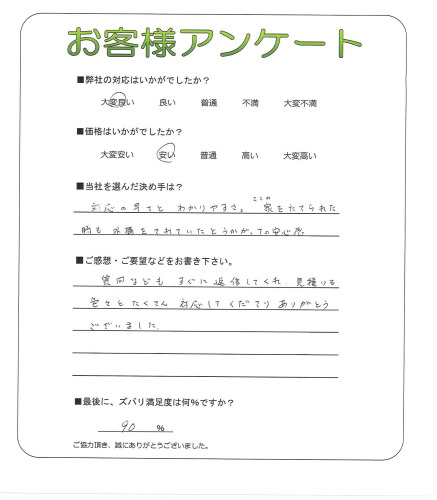 お客様アンケート
■弊社の対応はいかがでしたか？
大変良い　良い　普通　不満　大変不満
■価格はいかがでしたか？
大変安い　安い　普通　高い　大変高い
■当社を選んだ決め手は？
対応の早さと わかりやすさ。 ここの 家をたてられた
時も 外構をされていたとうかがい
■ご感想・ご要望などをお書き下さい。
質問なども すぐに返信してくれ、見積りも
色々とたくさん 対応してくださり ありがとう
ございました。
■最後に、ズバリ満足度は何%ですか？
90 %
ご協力頂き、誠にありがとうございました。